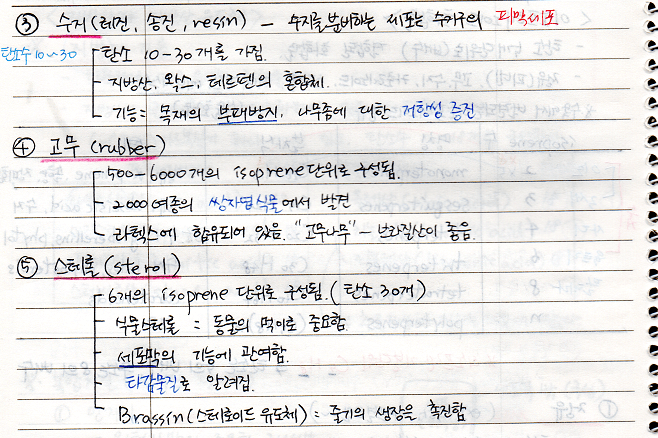 ③ 수지 (레진, 송진, resin) - 수지를 분비하는 세포는 수지구의 피막세포
탄소수 10~30
탄소 10-30개를 가짐.
지방산, 왁스, 테르텐의 혼합체.
기능 = 목재의 부패방지, 나무좀에 대한 저항성 증진
④ 고무 (rubber)
500-6000개의 isoprene 단위로 구성됨.
2000여종의 쌍자엽식물에서 발견
라텍스에 함유되어 있음. "고무나무" - 브라질산이 좋음.
⑤ 스테롤 (sterol)
6개의 isoprene 단위로 구성됨. (탄소 30개)
식물스테롤 = 동물의 먹이로 중요함.
세포막의 기능에 관여함.
타감물질로 알려짐.
Brassin (스테로이드 유도체) = 줄기의 생장을 촉진함